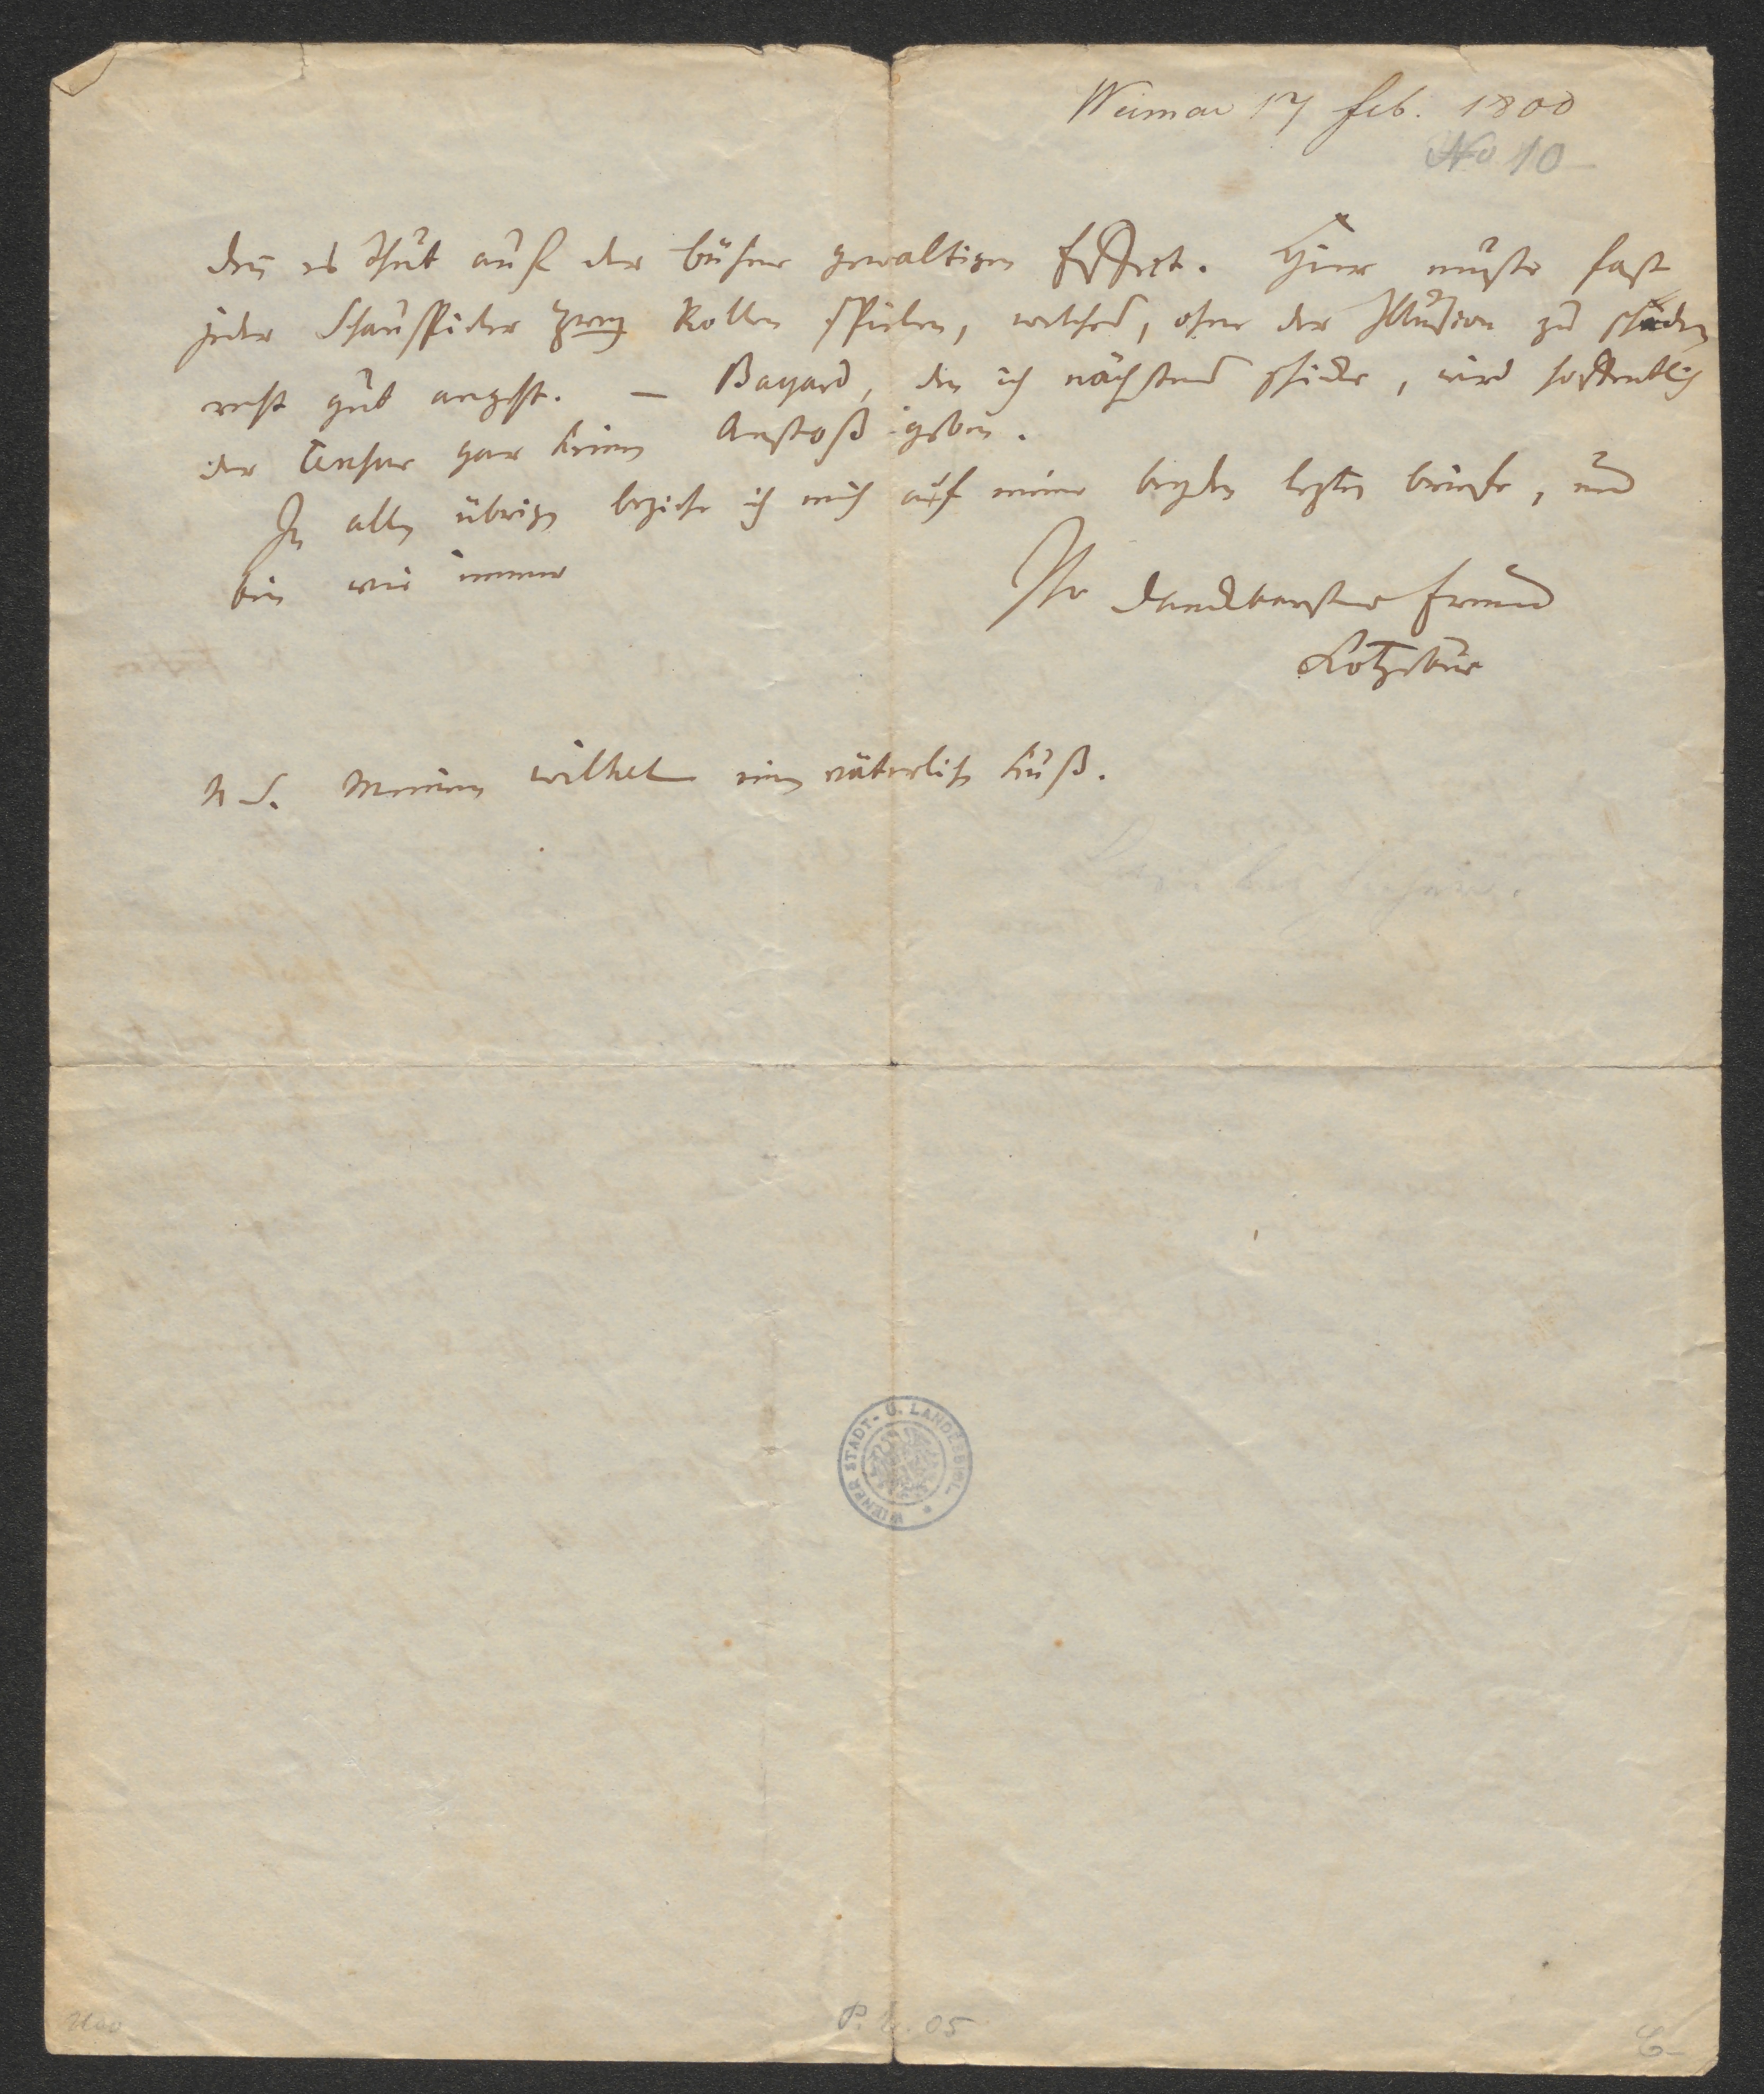 Weimar 17 feb. 1800
No 10
den es thut auf der Bühne gewaltigen Effect. Hier muste fast
jeder Schauspieler zwey Rollen spielen, welches, ohne der Illusion zu schaden
recht gut angeht. — Bayard, den ich nächstens schicke, wird hoffentlich
der Censur gar keinen Anstoß geben.
In allen übrigen beziehe ich mich auf meine beyden lezten Briefe, und
bin wie immer
Ihr dankbarster Freund
Kotzebue
N S. Meinem Wilhelm einen väterlichen Kuß.
WIENER STADT- U. LANDESBIBL.
05